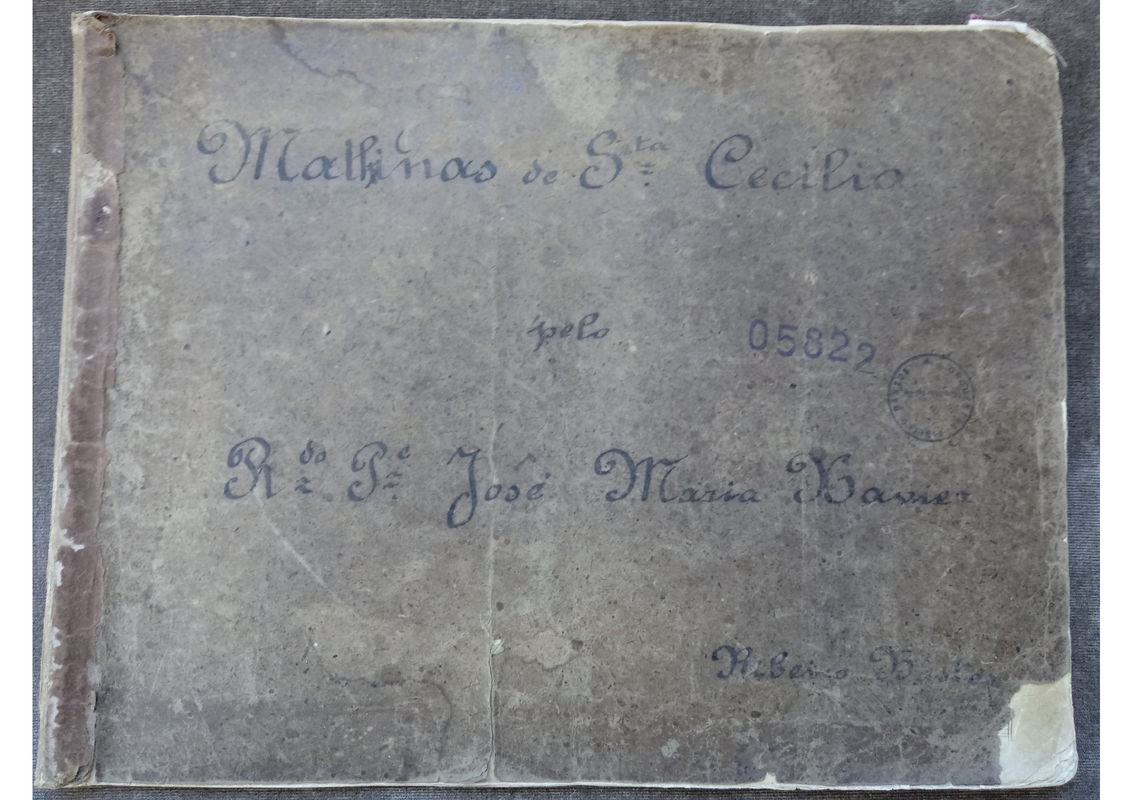 Mathinas de Sta Cecilia
pelo
05822
Rdo Pe José Maria Xavier
Ribeiro Bastos